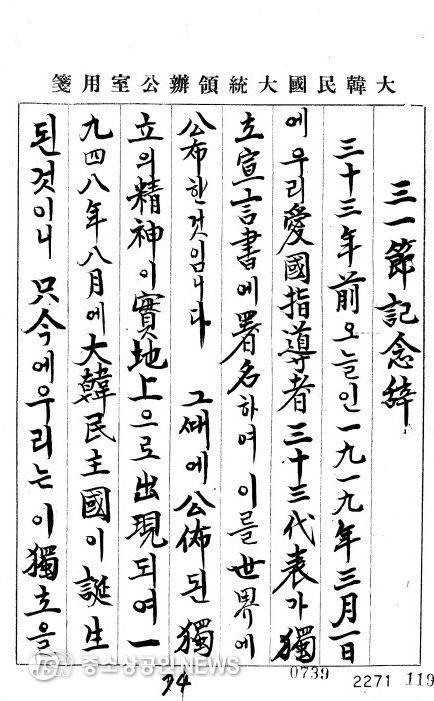 大韓民國大統領辦公室用箋
三一節記念辞
三十三年前오늘인一九一九年三月一日
에우리愛國指導者三十三代表가獨
立宣言書에署名하여이를世界에
公布한것입니다 그때에公佈된獨
立의精神이實地上으로出現되여一
九四八年八月에大韓民主國이誕生
된것이니 只今에우리는이獨立을
중소상공인NEWS
94
0739
2271 119